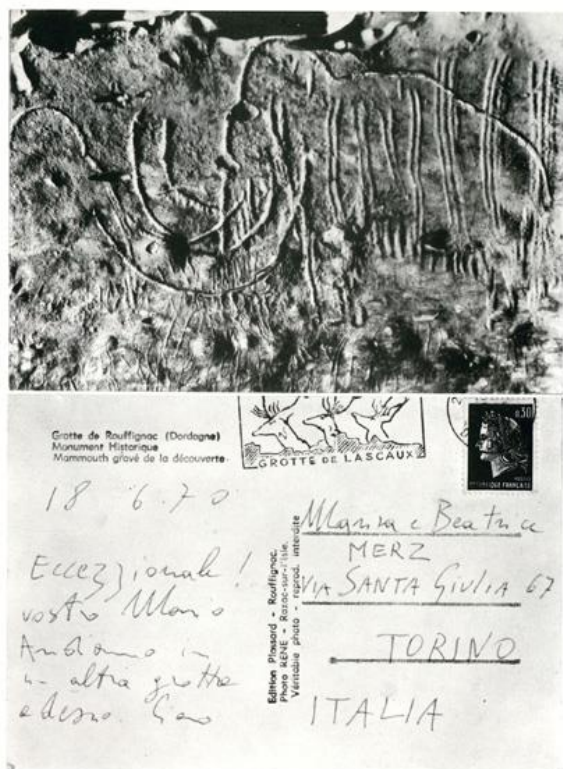 Grotte de Rouffignac (Dordogne)
Monument Historique
Mammouth gravé de la découverte
GROTTE DE LASCAUX
0,30
REPUBLIQUE FRANÇAISE
18 6.70
Eccezzionale!
vostro Mario
Andiamo in
un altra grotta
adesso. Ciao
Edition Plassard - Rouffignac.
Photo RENE - Razac-sur-l'Isle.
Véritable photo - reprod. interdite
Marisa e Beatrice
MERZ
VIA SANTA GIULIA 67
TORINO
ITALIA